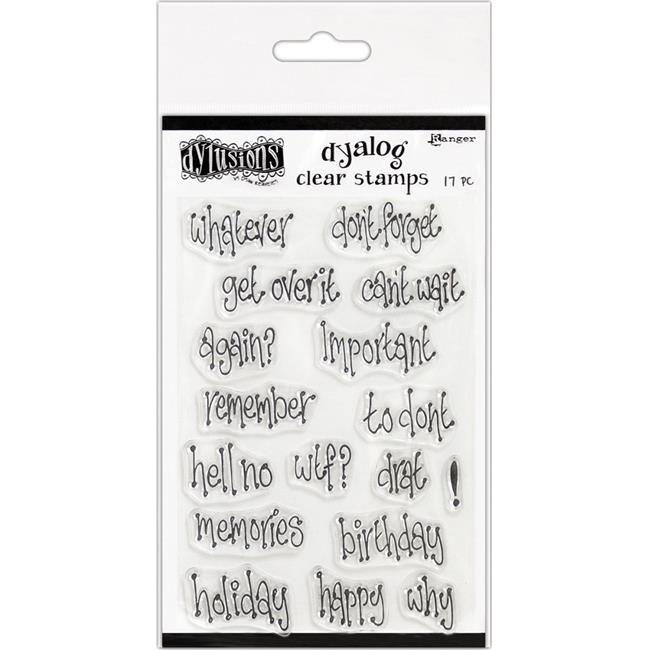 dylusions
dyalog
Ranger
clear stamps 17 PC
whatever don't forget
get over it can't wait
again? Important
remember to dont
hell no wtf? drat !
memories birthday
holiday happy why